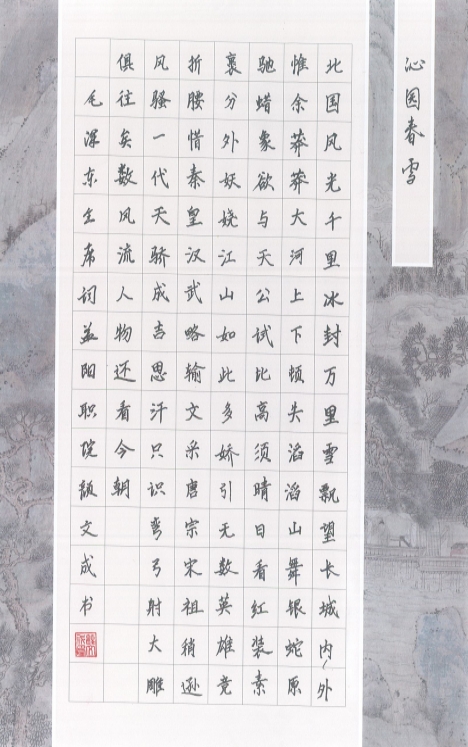 沁园春雪
北国风光千里冰封万里雪飘望长城内外
惟余莽莽大河上下顿失滔滔山舞银蛇原
驰蜡象欲与天公试比高须晴日看红装素
裹分外妖娆江山如此多娇引无数英雄竞
折腰惜秦皇汉武略输文采唐宗宋祖稍逊
风骚一代天骄成吉思汗只识弯弓射大雕
俱往矣数风流人物还看今朝
毛泽东主席词益阳职院颜文成书